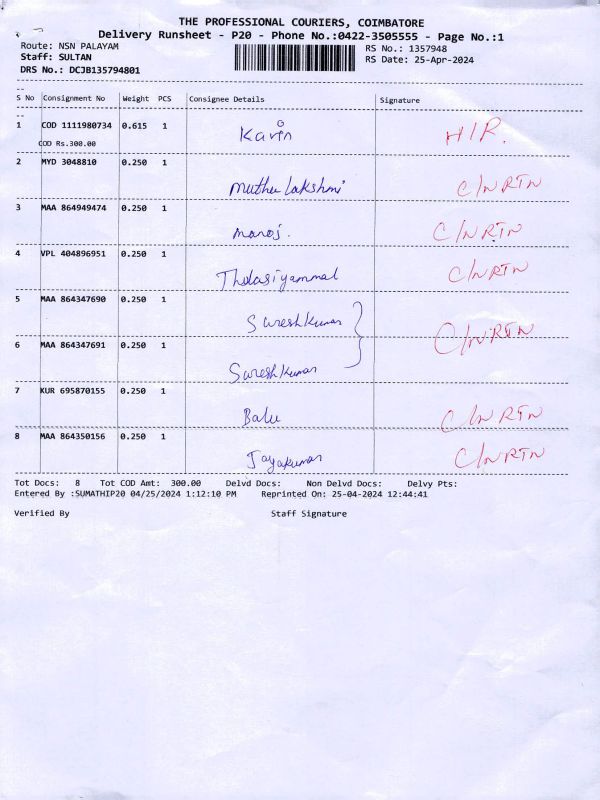 THE PROFESSIONAL COURIERS, COIMBATORE
Delivery Runsheet - P20 - Phone No.:0422-3505555 - Page No.:1
Route: NSN PALAYAM RS No.: 1357948
Staff: SULTAN RS Date: 25-Apr-2024
DRS No.: DCJB135794801
S No Consignment No Weight PCS Consignee Details Signature
1 COD 1111980734 0.615 1 Kavin H/R.
COD Rs.300.00
2 MYD 3048810 0.250 1 Muthu Lakshmi C/N RTN
3 MAA 864949474 0.250 1 Manoj. C/N RTN
4 VPL 404896951 0.250 1 Thulasiyammal C/N RTN
5 MAA 864347690 0.250 1 Suresh Kumar C/N RTN
6 MAA 864347691 0.250 1 Suresh Kumar
7 KUR 695870155 0.250 1 Balu C/N RTN
8 MAA 864350156 0.250 1 Jayakumar C/N RTN
Tot Docs: 8 Tot COD Amt: 300.00 Delvd Docs: Non Delvd Docs: Delvy Pts:
Entered By :SUMATHIP20 04/25/2024 1:12:10 PM Reprinted On: 25-04-2024 12:44:41
Verified By Staff Signature